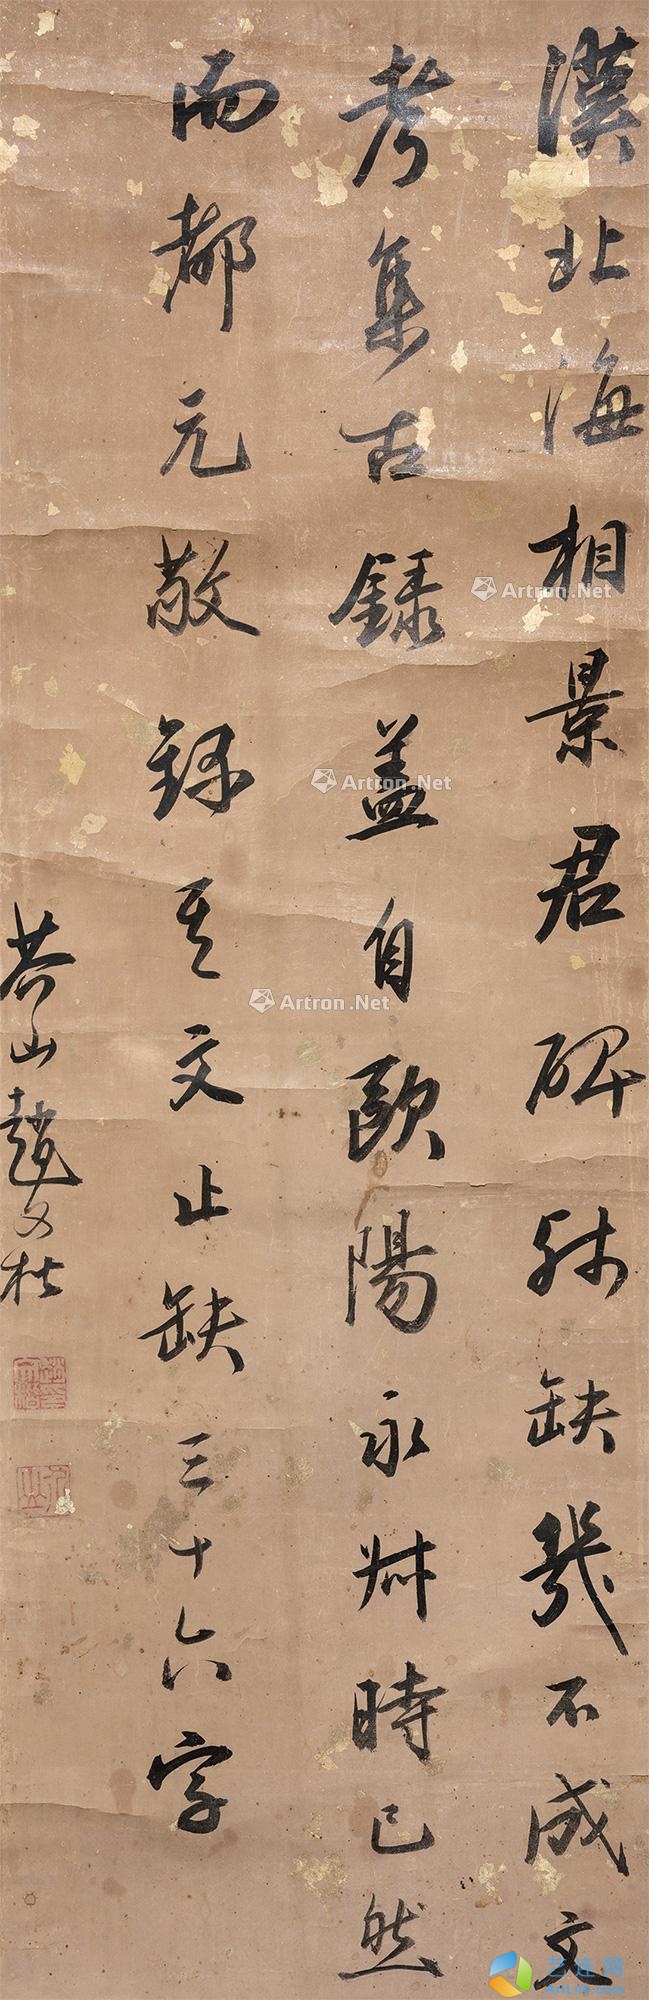 漢北海相景君碑殘缺幾不成文
考集古録蓋自歐陽永叔時已然
而都元敬録其文止缺三十六字
恭山趙文楷
Artron.Net
Artron.Net
Artron.Net